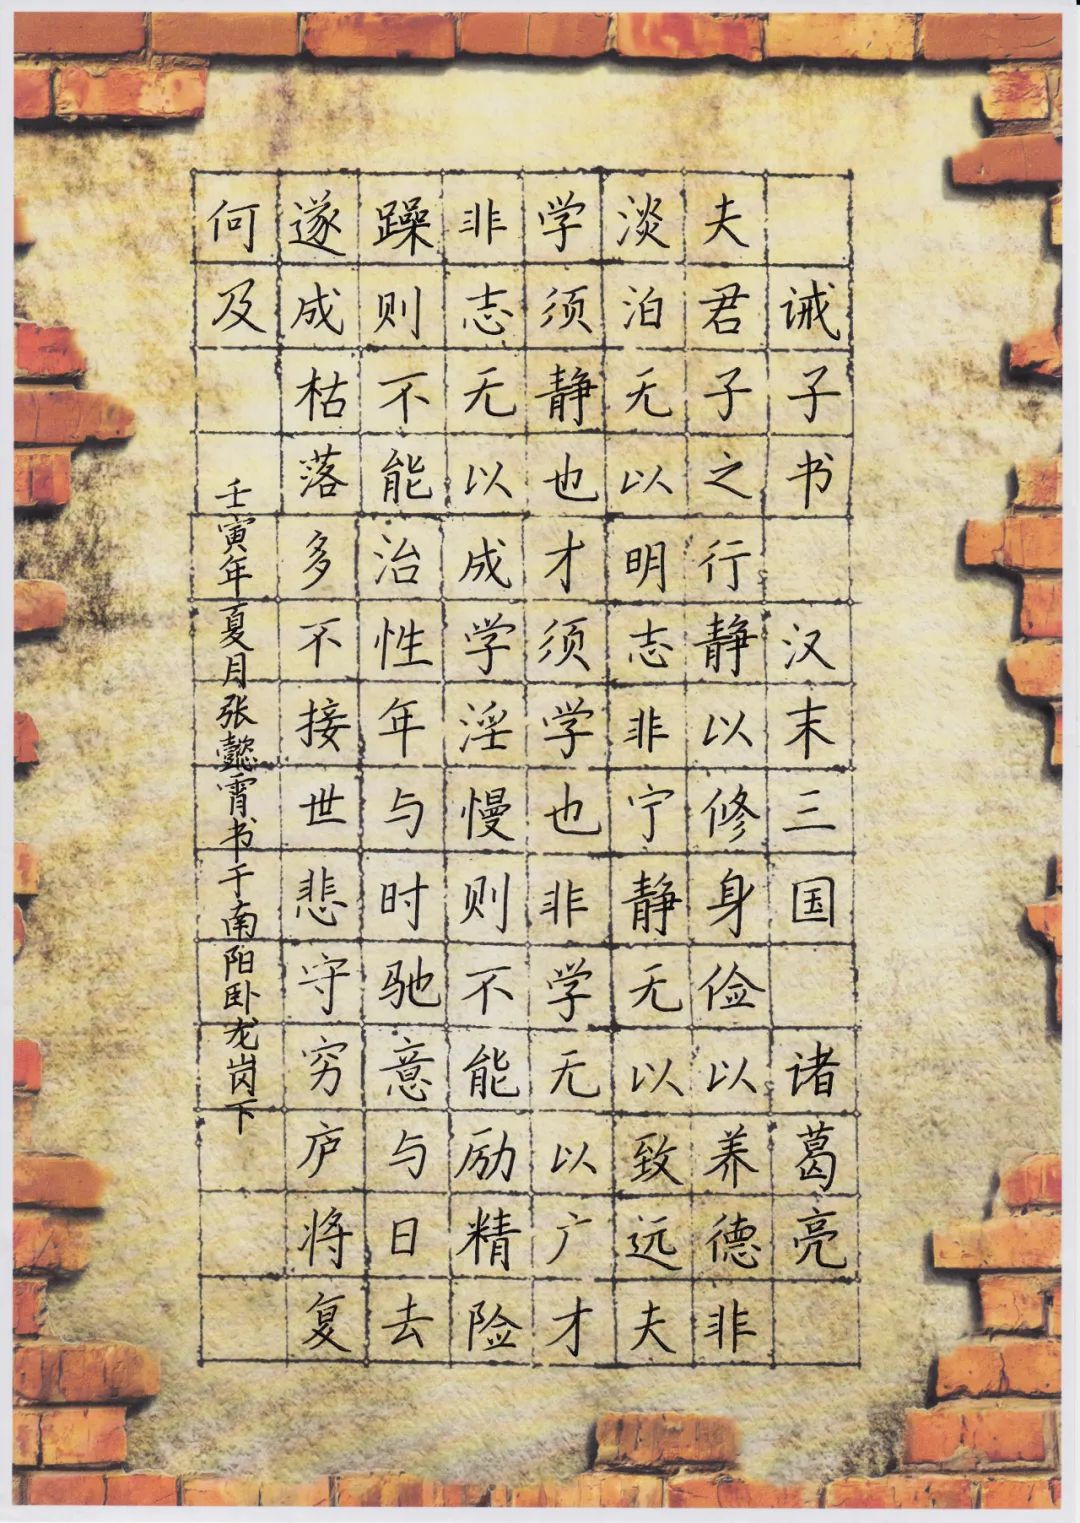 诫子书 汉末三国 诸葛亮
夫君子之行静以修身俭以养德非
淡泊无以明志非宁静无以致远夫
学须静也才须学也非学无以广才
非志无以成学淫慢则不能励精险
躁则不能治性年与时驰意与日去
遂成枯落多不接世悲守穷庐将复
何及
壬寅年夏月张懿霄书于南阳卧龙岗下